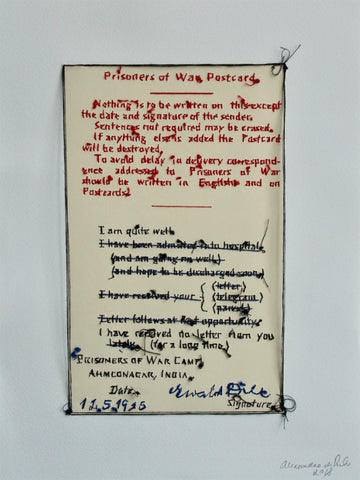 Prisoners of War Postcard
Nothing is to be written on this except
the date and signature of the sender.
Sentences not required may be erased.
If anything else is added the Postcard
will be destroyed.
To avoid delay in delivery correspond-
ence addressed to Prisoners of War
should be written in English and on
Postcards.
I am quite well
I have been admitted into hospital
(and am going on well)
(and hope to be discharged soon)
I have received your
(letter)
(telegram)
(parcel)
Letter follows at first opportunity.
I have received no letter from you
lately. (for a long time)
PRISONERS OF WAR CAMP,
AHMEDNAGAR, INDIA.
Date
11.5.1915
Ewald
Signature